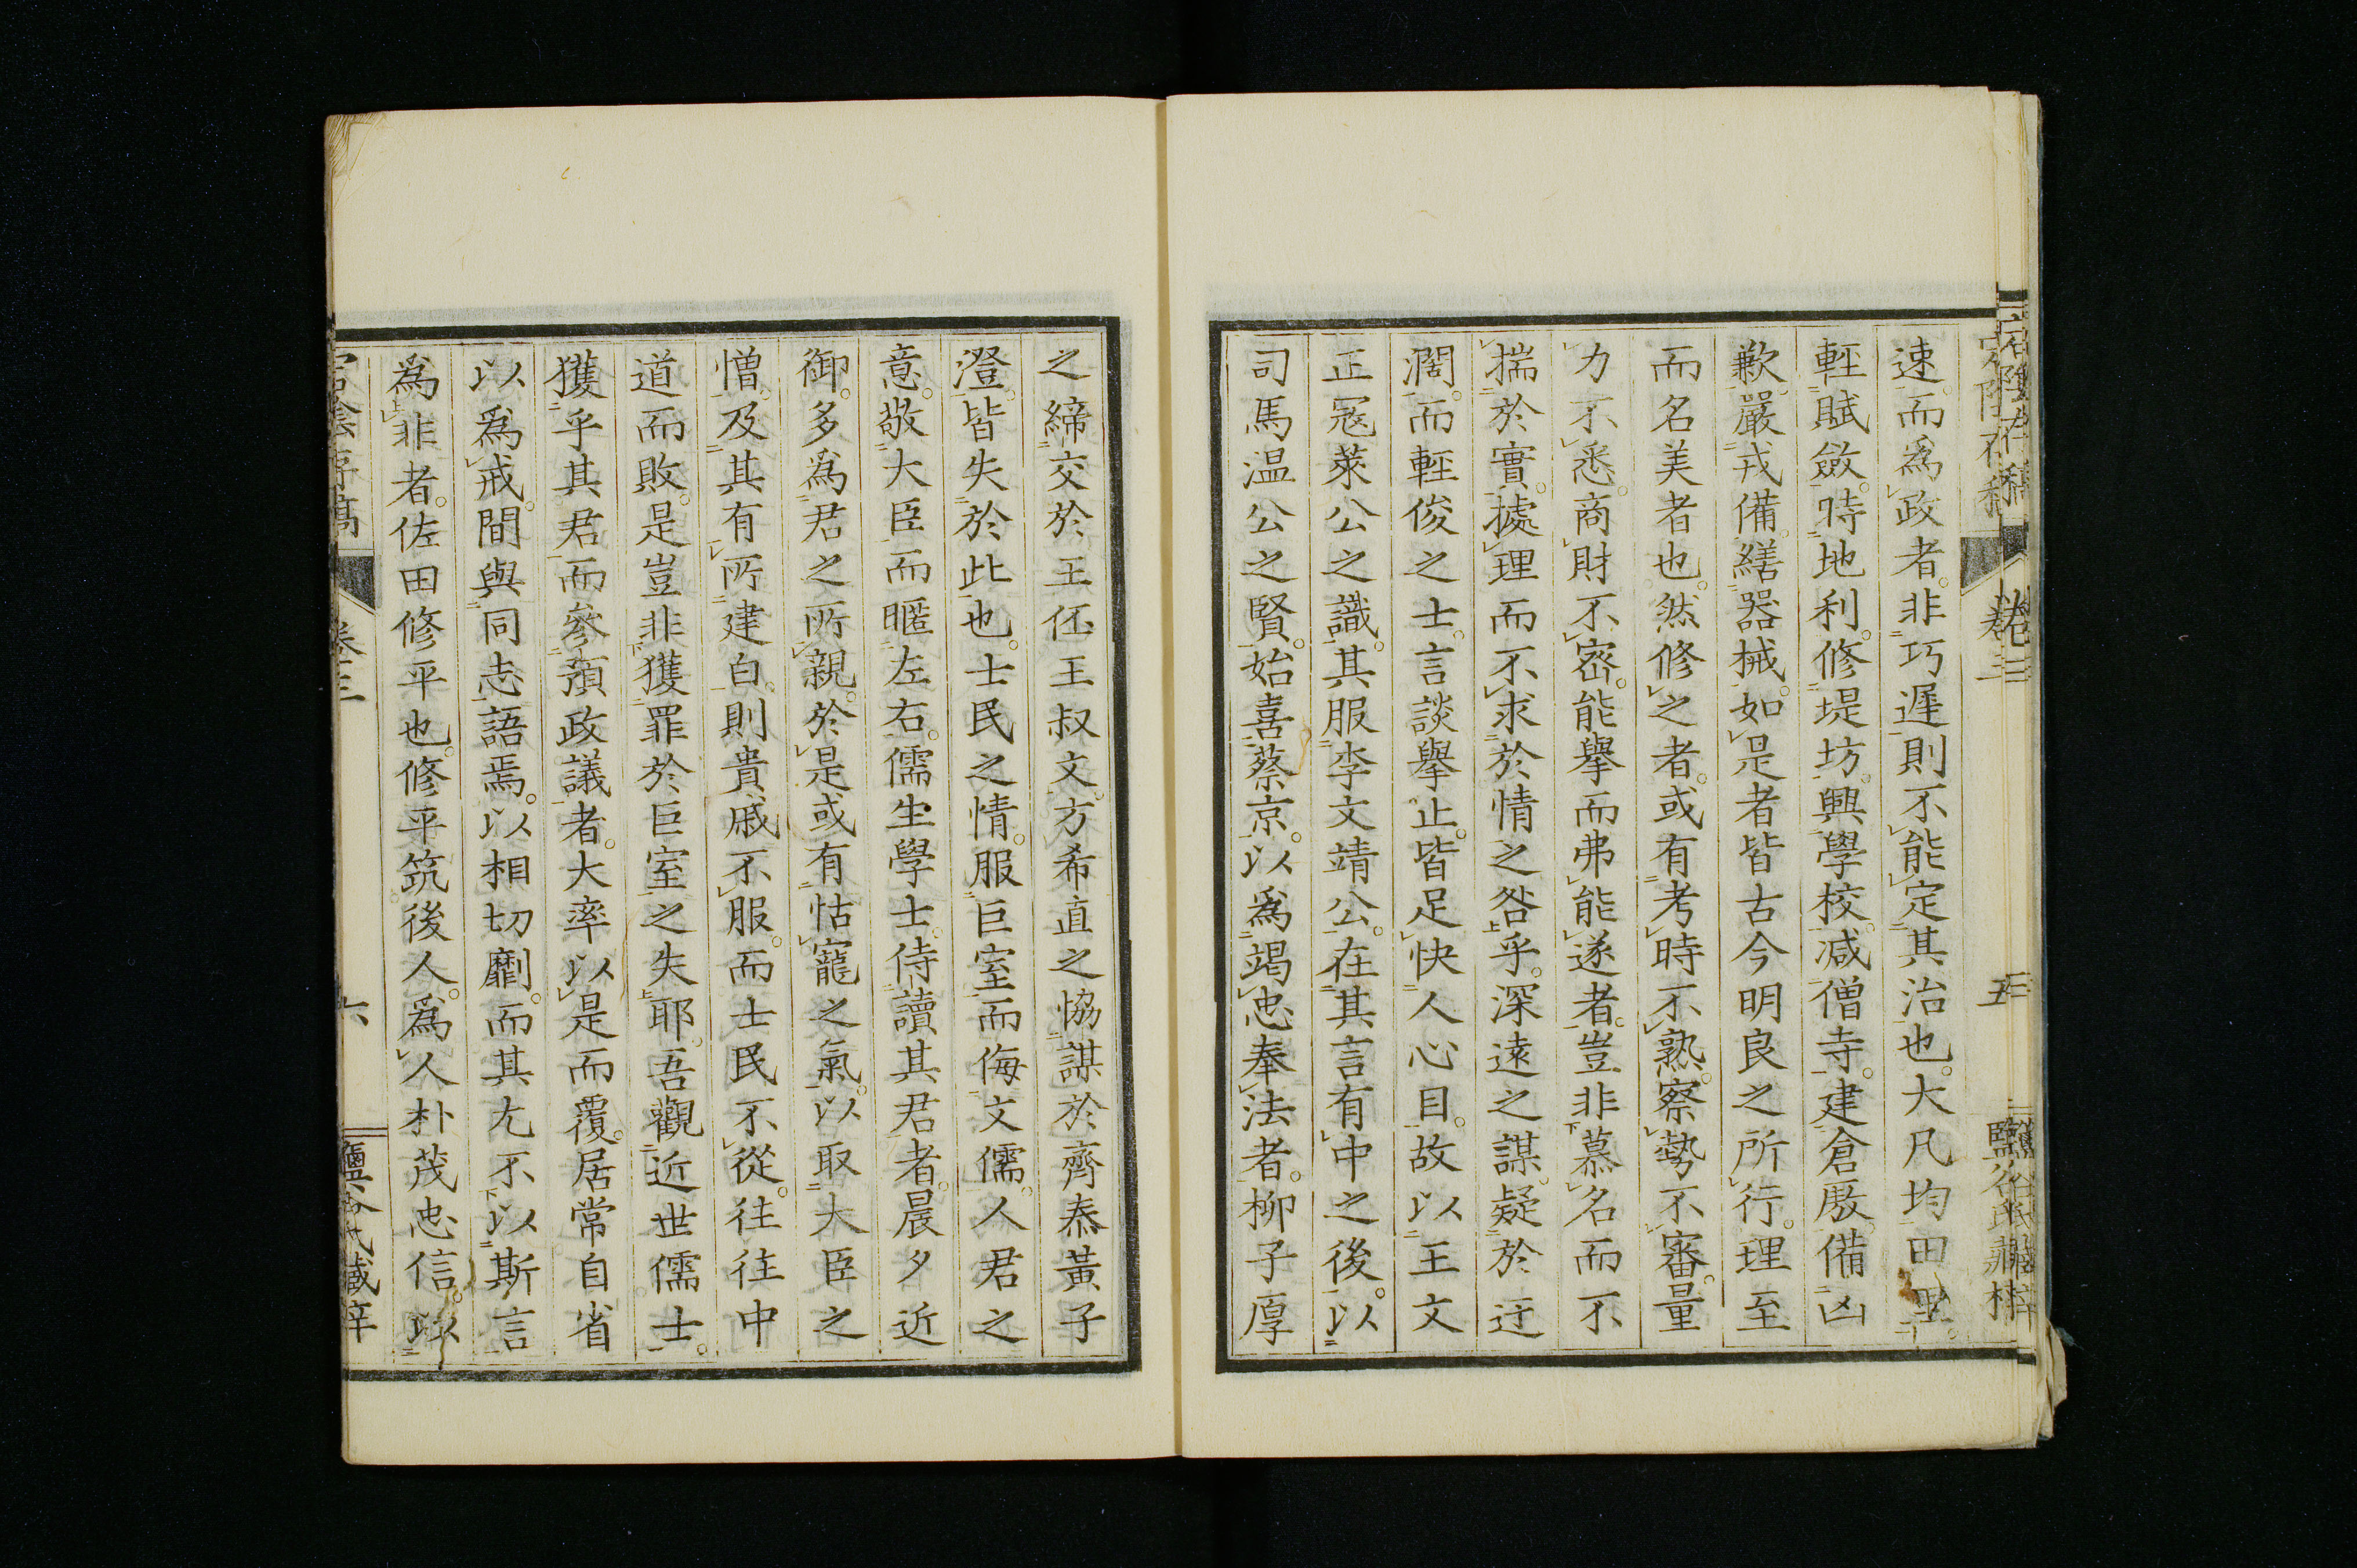 速。而爲政者。非巧遲則不能定其治也。大凡均田里。
輕賦斂。時地利。修堤坊。興學校。減僧寺。建倉廒。備凶
歉。嚴戎備。繕器械。如是者皆古今明良之所行。理至
而名美者也。然修之者。或有考時不熟。察勢不審。量
力不悉。商財不密。能擧而弗能遂者。豈非慕名而不
揣於實。據理而不求於情之咎乎。深遠之謀。疑於迂
濶。而輕俊之士。言談擧止。皆足快人心目。故以王文
正寇萊公之識。其服李文靖公。在其言有中之後。以
司馬温公之賢。始喜蔡京。以爲竭忠奉法者。柳子厚
之締交於王伾王叔文。方希直之協謀於齊泰黃子
澄。皆失於此也。士民之情。服巨室而侮文儒。人君之
意。敬大臣而暱左右。儒生學士。侍讀其君者。晨夕近
御。多爲君之所親。於是或有怙寵之氣。以取大臣之
憎。及其有所建白。則貴戚不服。而士民不從。往往中
道而敗。是豈非獲罪於巨室之失耶。吾觀近世儒士。
獲乎其君。而參預政議者。大率以是而覆。居常自省
以爲戒。間與同志語焉。以相切劘。而其尤不以斯言
爲非者。佐田修平也。修平筑後人。爲人朴茂忠信。以
卷三
六